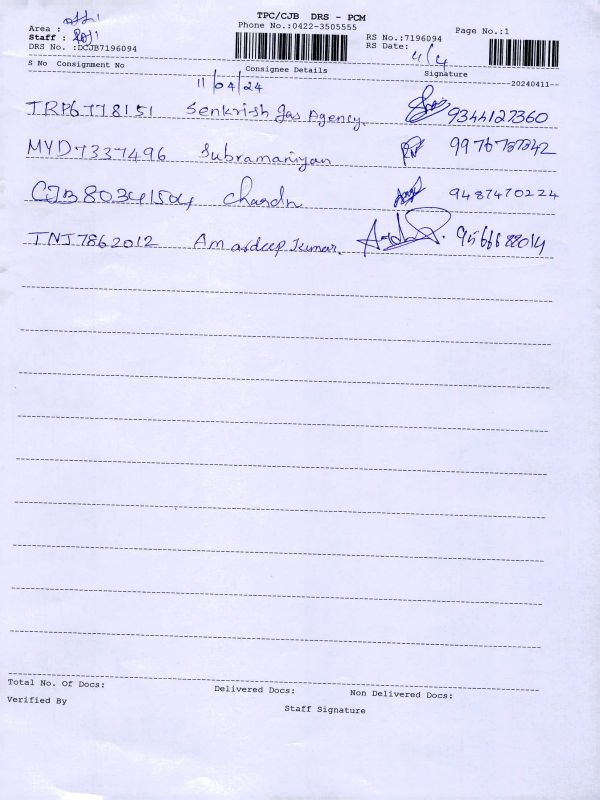 TPC/CJB DRS - PCM
Phone No.:0422-3505555
Area :
Staff :
DRS No. :DCJB7196094
RS No.:7196094
RS Date: 4/4
Page No.:1
S No Consignment No Consignee Details Signature
11/04/24 20240411
TRP6778151 Senkrish gas Agency. 9344127360
MYD7337496 Subramaniyan
CJB80341504 Chandn 9487470224
TNJ7862012 Amardeep Kumar.
Total No. Of Docs: Delivered Docs: Non Delivered Docs:
Verified By Staff Signature